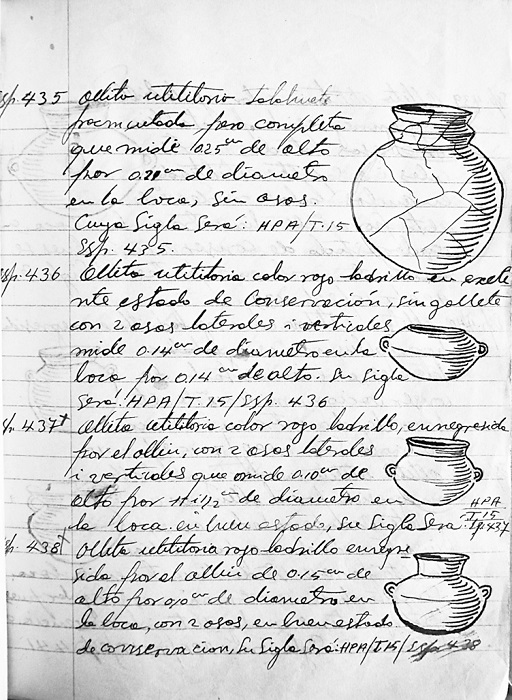 Ssp. 435 Ollita utilitoria
fracmutada pero completa
que mide 025 cm de alto
por 0.20 cm de diametro
en la boca, sin asas.
Cuya Sigla Será: HPA/T.15
Ssp. 435.
Ssp. 436 Ollita utilitoria color rojo ladrillo en exele
nte estado de Conservación, sin gollete
con 2 asas laterales i verticales
mide 0.14 cm de diametro en la
boca por 0.14 cm de alto. Su Sigla
Será: HPA/T.15/Ssp. 436
437 Ollita utilitoria color rojo ladrillo, ennegresida
por el ollin, con 2 asas laterales
i verticales que mide 0.10 cm de
alto por 11 i 1/2 cm de diametro en
la boca. en buen estado, Su Sigla Sera: HPA
T15
Ssp. 437
438 Ollita utilitoria rojo ladrillo ennegre
sida por el ollin de 0.15 cm de
alto por cm de diametro en
la boca, con 2 asas, en buen estado
de conservacion, Su Sigla Será: HPA/T15/Ssp 438